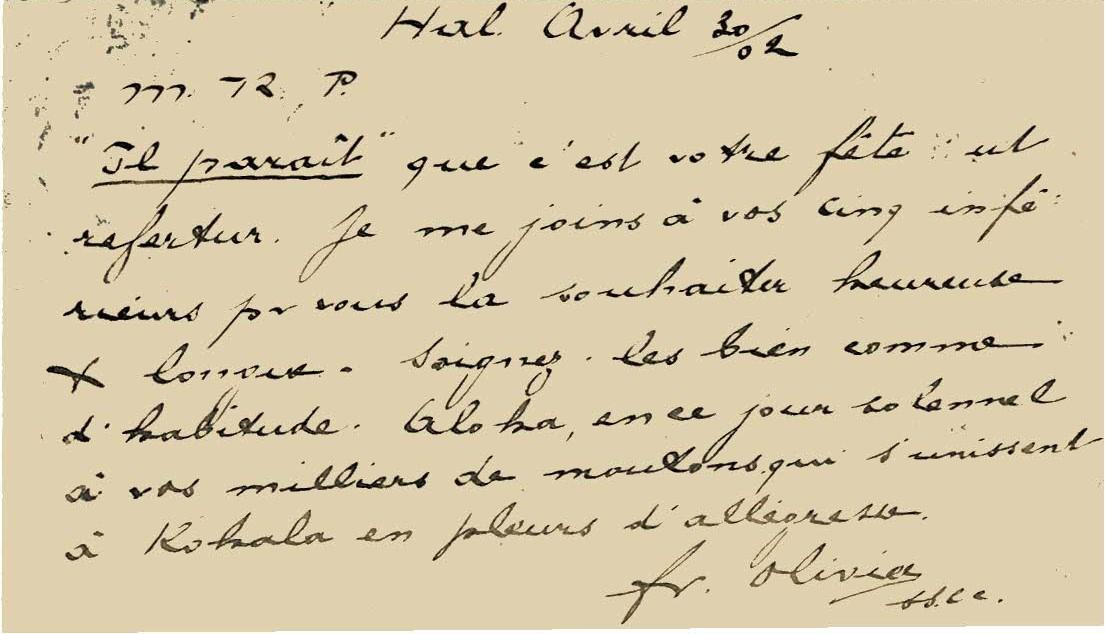 Hal. Avril 30/02
M. R. P.
"Il parait" que c'est votre fête ut
refertur. Je me joins à vos cinq infé-
rieurs pr vous la souhaiter heureuse
+ longue. Soignez-les bien comme
d'habitude. Aloha, en ce jour solennel
à vos milliers de moutons qui s'unissent
à Kohala en pleurs d'allégresse.
fr. Olivier
ss.cc.